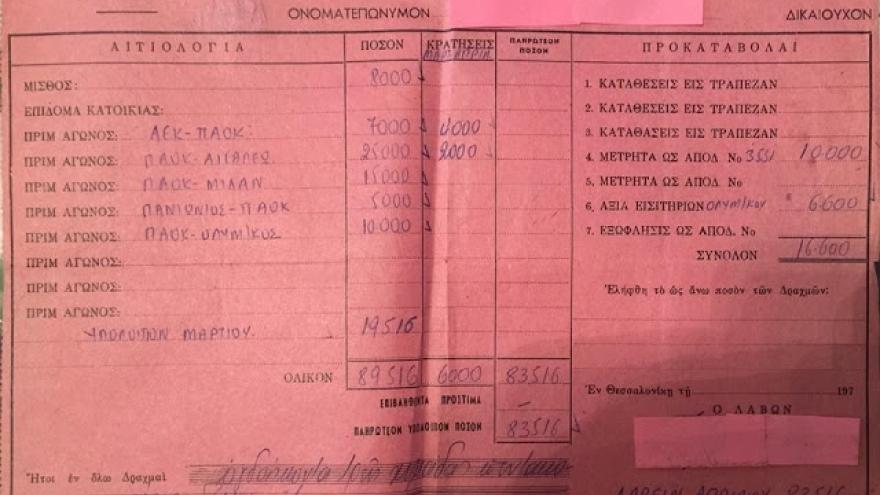 ΟΝΟΜΑΤΕΠΩΝΥΜΟΝ ΔΙΚΑΙΟΥΧΟΝ
ΑΙΤΙΟΛΟΓΙΑ ΠΟΣΟΝ ΚΡΑΤΗΣΕΙΣ ΠΛΗΡΩΤΕΟΝ ΠΟΣΟΝ ΠΡΟΚΑΤΑΒΟΛΑΙ
ΜΙΣΘΟΣ: 8000 1. ΚΑΤΑΘΕΣΕΙΣ ΕΙΣ ΤΡΑΠΕΖΑΝ
ΕΠΙΔΟΜΑ ΚΑΤΟΙΚΙΑΣ: 2. ΚΑΤΑΘΕΣΕΙΣ ΕΙΣ ΤΡΑΠΕΖΑΝ
ΠΡΙΜ ΑΓΩΝΟΣ: ΑΕΚ-ΠΑΟΚ 7000 4000 3. ΚΑΤΑΘΑΣΕΙΣ ΕΙΣ ΤΡΑΠΕΖΑΝ
ΠΡΙΜ ΑΓΩΝΟΣ: ΠΑΟΚ-ΑΙΓΑΛΕΩ 25000 2000 4. ΜΕΤΡΗΤΑ ΩΣ ΑΠΟΔ. Νο 3551 10.000
ΠΡΙΜ ΑΓΩΝΟΣ: ΠΑΟΚ-ΜΙΛΑΝ 15000 5. ΜΕΤΡΗΤΑ ΩΣ ΑΠΟΔ. Νο
ΠΡΙΜ ΑΓΩΝΟΣ: ΠΑΝΙΩΝΙΟΣ-ΠΑΟΚ 5000 6. ΑΞΙΑ ΕΙΣΙΤΗΡΙΩΝ ΟΛΥΜΠΙΚΟΥ 6.600
ΠΡΙΜ ΑΓΩΝΟΣ: ΠΑΟΚ-ΟΛΥΜΠΙΚΟΣ 10.000 7. ΕΞΩΦΛΗΣΙΣ ΩΣ ΑΠΟΔ. Νο
ΠΡΙΜ ΑΓΩΝΟΣ: ΣΥΝΟΛΟΝ 16.600
ΠΡΙΜ ΑΓΩΝΟΣ: Ἐλήφθη τὸ ὡς ἄνω ποσὸν τῶν Δραχμῶν:
ΠΡΙΜ ΑΓΩΝΟΣ:
ΥΠΟΛΟΙΠΟΝ ΜΑΡΤΙΟΥ. 19516
ΟΛΙΚΟΝ 89516 6000 83516
ΕΠΙΒΛΗΘΕΝΤΑ ΠΡΟΣΤΙΜΑ – Ἐν Θεσσαλονίκῃ τῇ 197
ΠΛΗΡΩΤΕΟΝ ΥΠΟΛΟΙΠΟΝ ΠΟΣΟΝ 83516 Ο ΛΑΒΩΝ
Ἤτοι ἐν ὅλῳ Δραχμαὶ